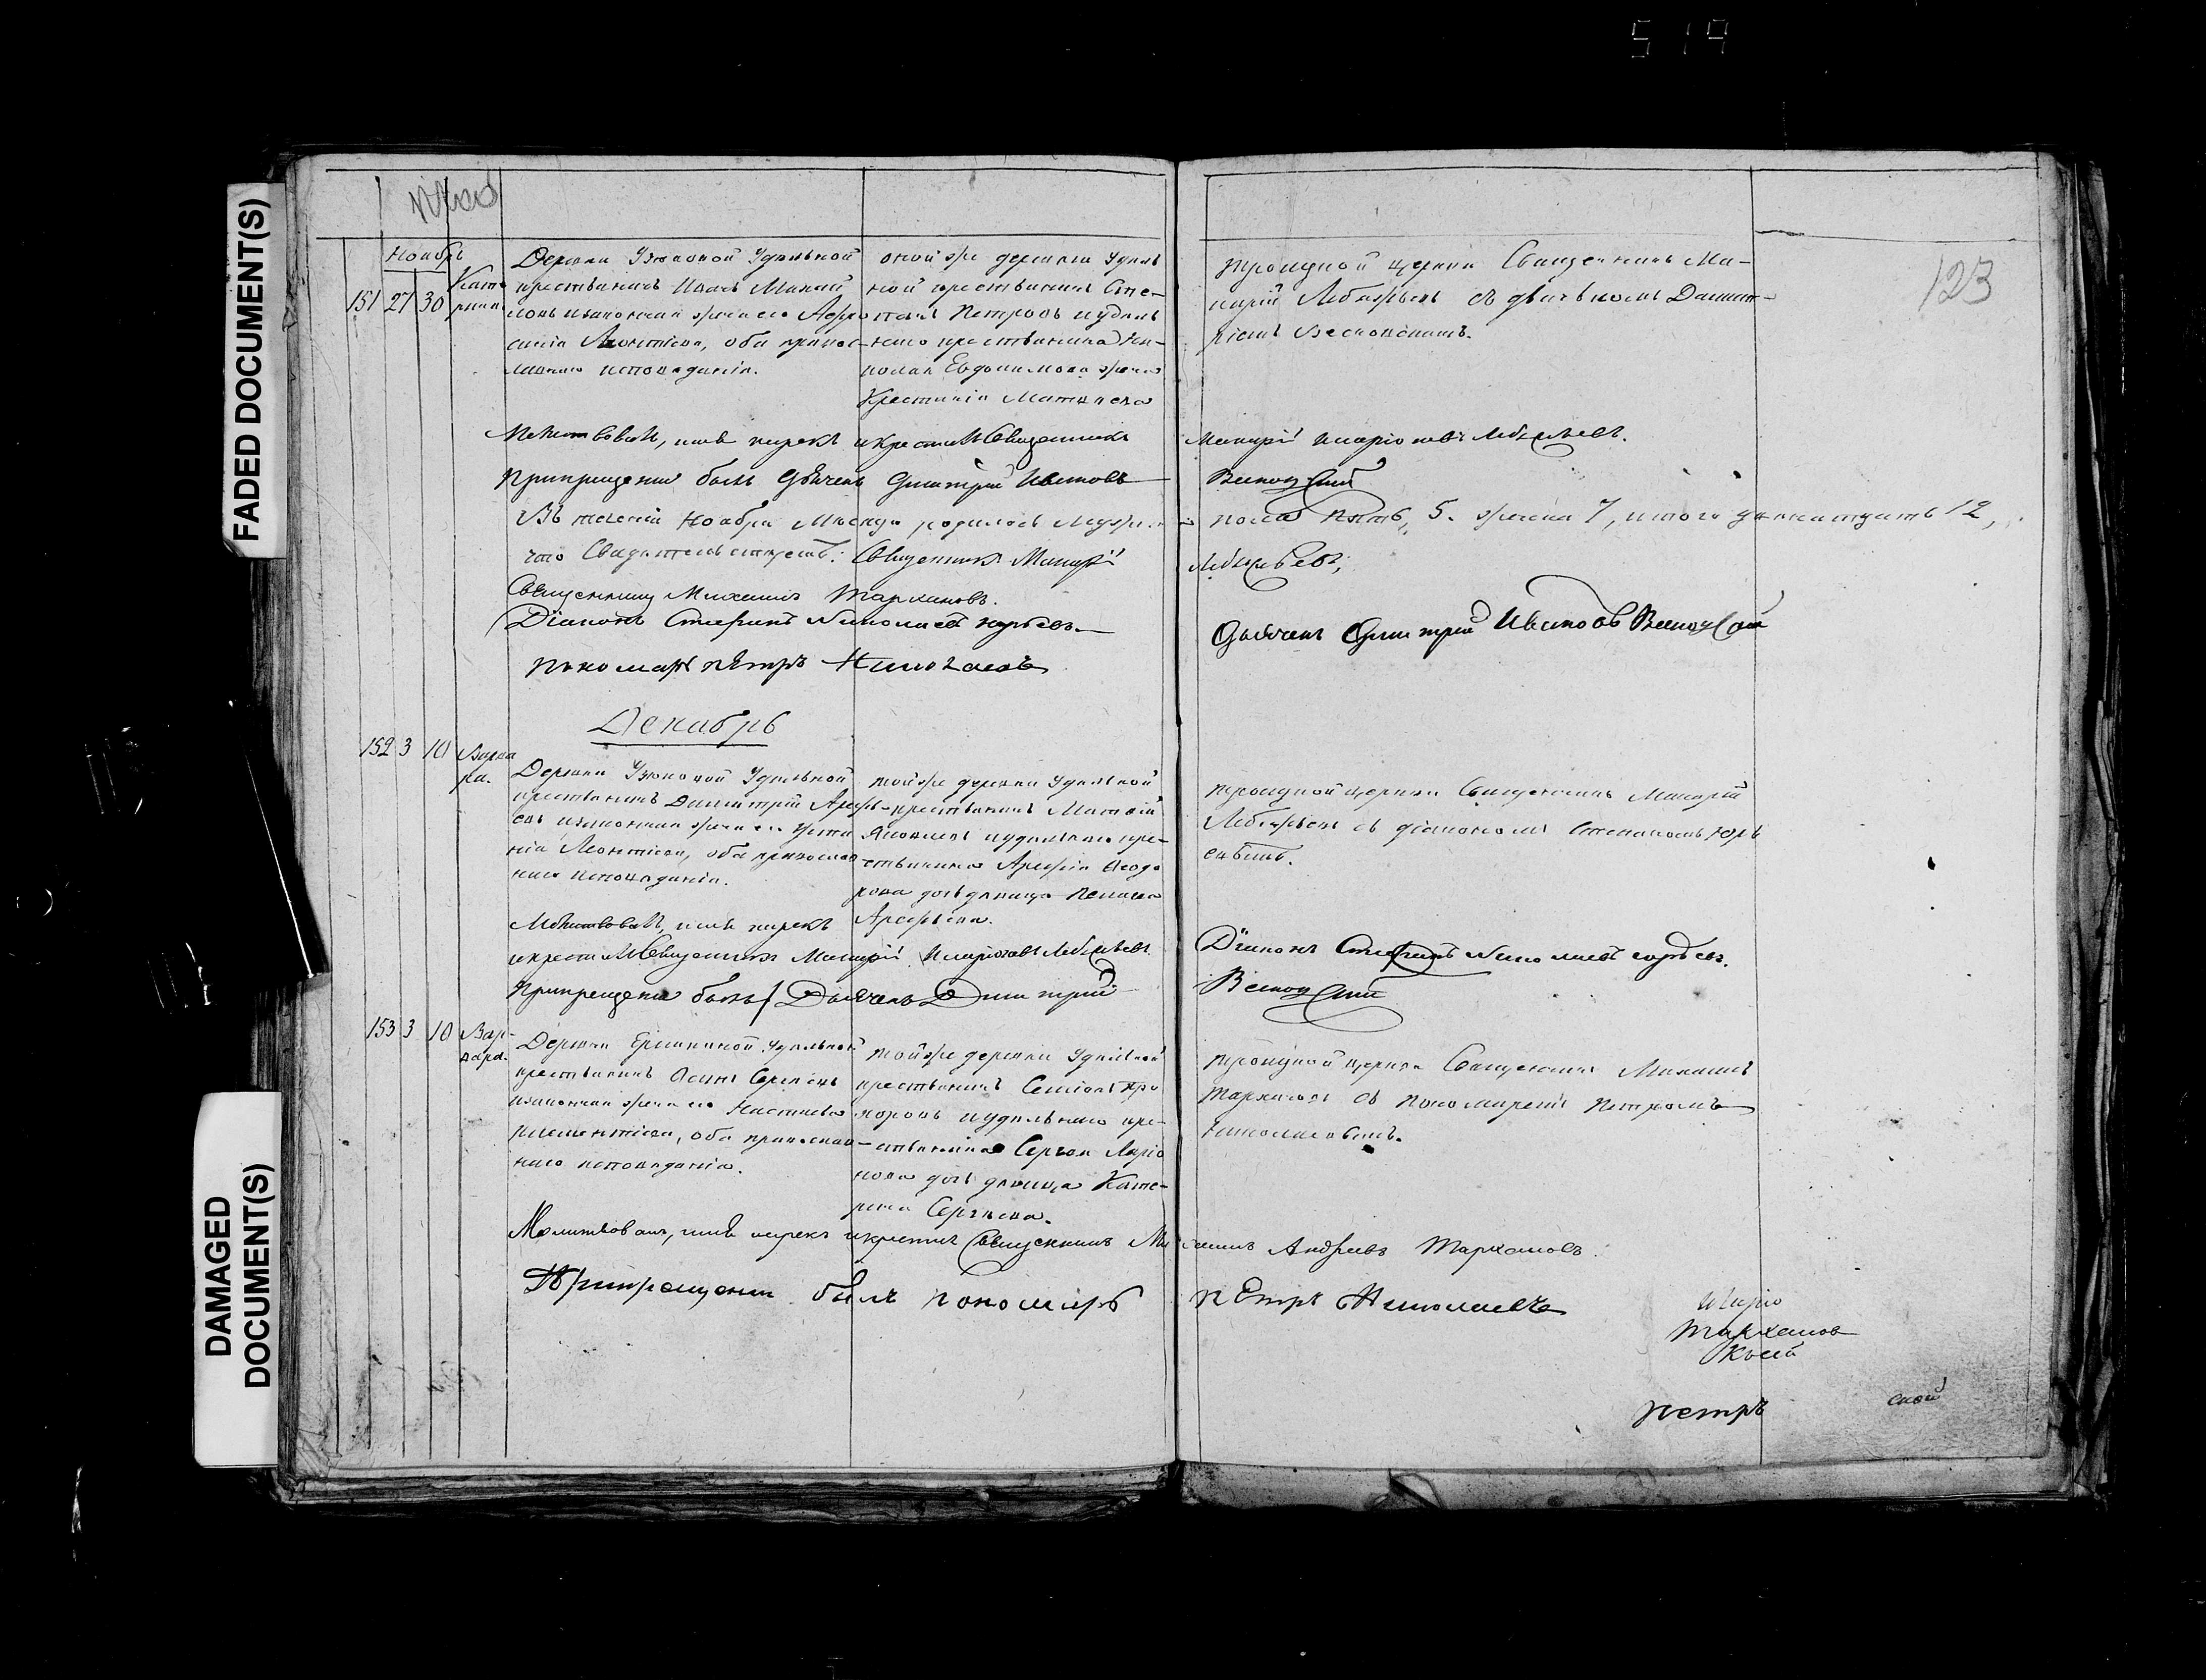 519
FADED DOCUMENT(S)
DAMAGED DOCUMENT(S)
123
Ноабрь
151 27 30 Кате
рина
Деревни Удѣльной
крестьянинъ Иванъ
ловъ изаконная жена его
синія Леонтіева, оба правос-
лавнаго исповѣданія.
оной же деревни Удѣль
ной крестьянинъ Сте-
панъ Петровъ иудѣль
наго крестьянина Ни-
колая Евдокимова жена
Матвѣева
Троицкой церкви Священникъ Ма-
карій Лебяжьевъ съ дьячькомъ Димит-
ріемъ
Молитвовалъ, имя нарекъ икрестилъ Священникъ
Макарій Иларіоновъ Лебяжьевъ.
Прикрещеніи былъ Дьячекъ Дмитрій Ивановъ
Въ теченіи Ноабря Мѣсяца родилось Мужес-
каго пола пять, 5. женска 7, итого двенатцать 12,
что Свидѣтельствуетъ: Священникъ Макарій
Лебяжьевъ;
Священникъ Михаилъ Тархановъ.
Діаконъ Стефанъ Николаевъ Юрьевъ.
Дьячекъ Дмитрій Ивановъ
пономарь пЕтръ Николаевъ
Декабрь
152 3 10 Варва
ра.
Деревни Удѣльной
крестьянинъ Димитрій Арефь-
евъ изаконная жена его Усти
нія Леонтіева, оба православ
наго исповѣданія.
тойже деревни Удѣльной
крестьянинъ Матвѣй
Яковлевъ иудѣльнаго кре-
стьянина Арефія Ѳедо
рова дочь дѣвица Пелагея
Арефьева.
Троицкой церкви Священникъ Макарій
Лебяжьевъ съ діакономъ Степаномъ Юрь
евымъ.
Молитвовалъ, имя нарекъ
икрестилъ Священникъ Макарій Иларіоновъ Лебяжьевъ.
Діаконъ Стефанъ Николаевъ Юрьевъ.
Прикрещеніи былъ Дьячекъ Дмитрій
153 3 10 Вар-
вара.
Деревни Удѣльной
крестьянинъ Осипъ Сергѣевъ
изаконная жена его Настасья
Клементіева, оба православ-
наго исповѣданія.
тойже деревни Удѣльной
крестьянинъ Семіонъ Про
хоровъ иудѣльнаго кре-
стьянина Сергѣя Ларіо
нова дочь дѣвица Кате-
рина Сергѣева.
Троицкой церкви Священникъ Михаилъ
Тархановъ съ пономаремъ Петромъ
Николаевымъ.
Молитвовалъ, имя нарекъ икрестилъ Священникъ Михаилъ Андреевъ Тархановъ.
Прикрещеніи былъ пономарь пЕтръ Николаевъ
Тарханов
петръ
ской